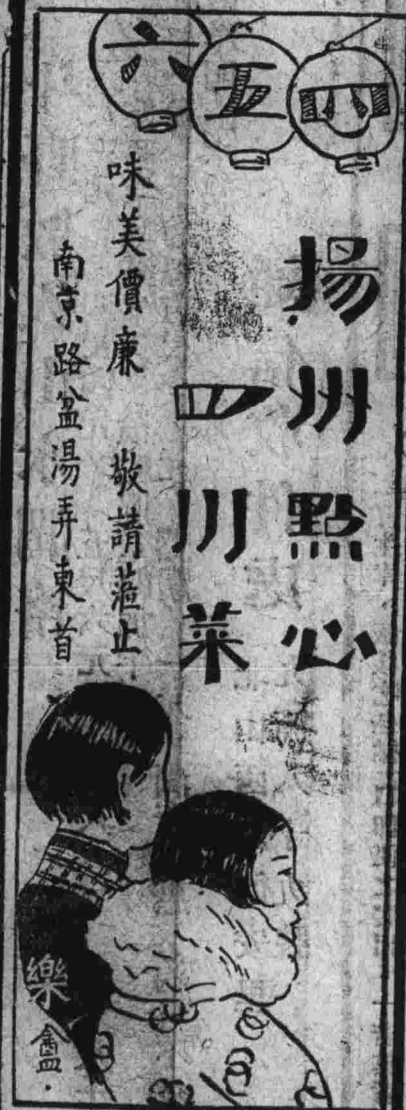 四五六
揚州點心
四川菜
味美價廉 敬請蒞止
南京路盆湯弄東首
樂盦